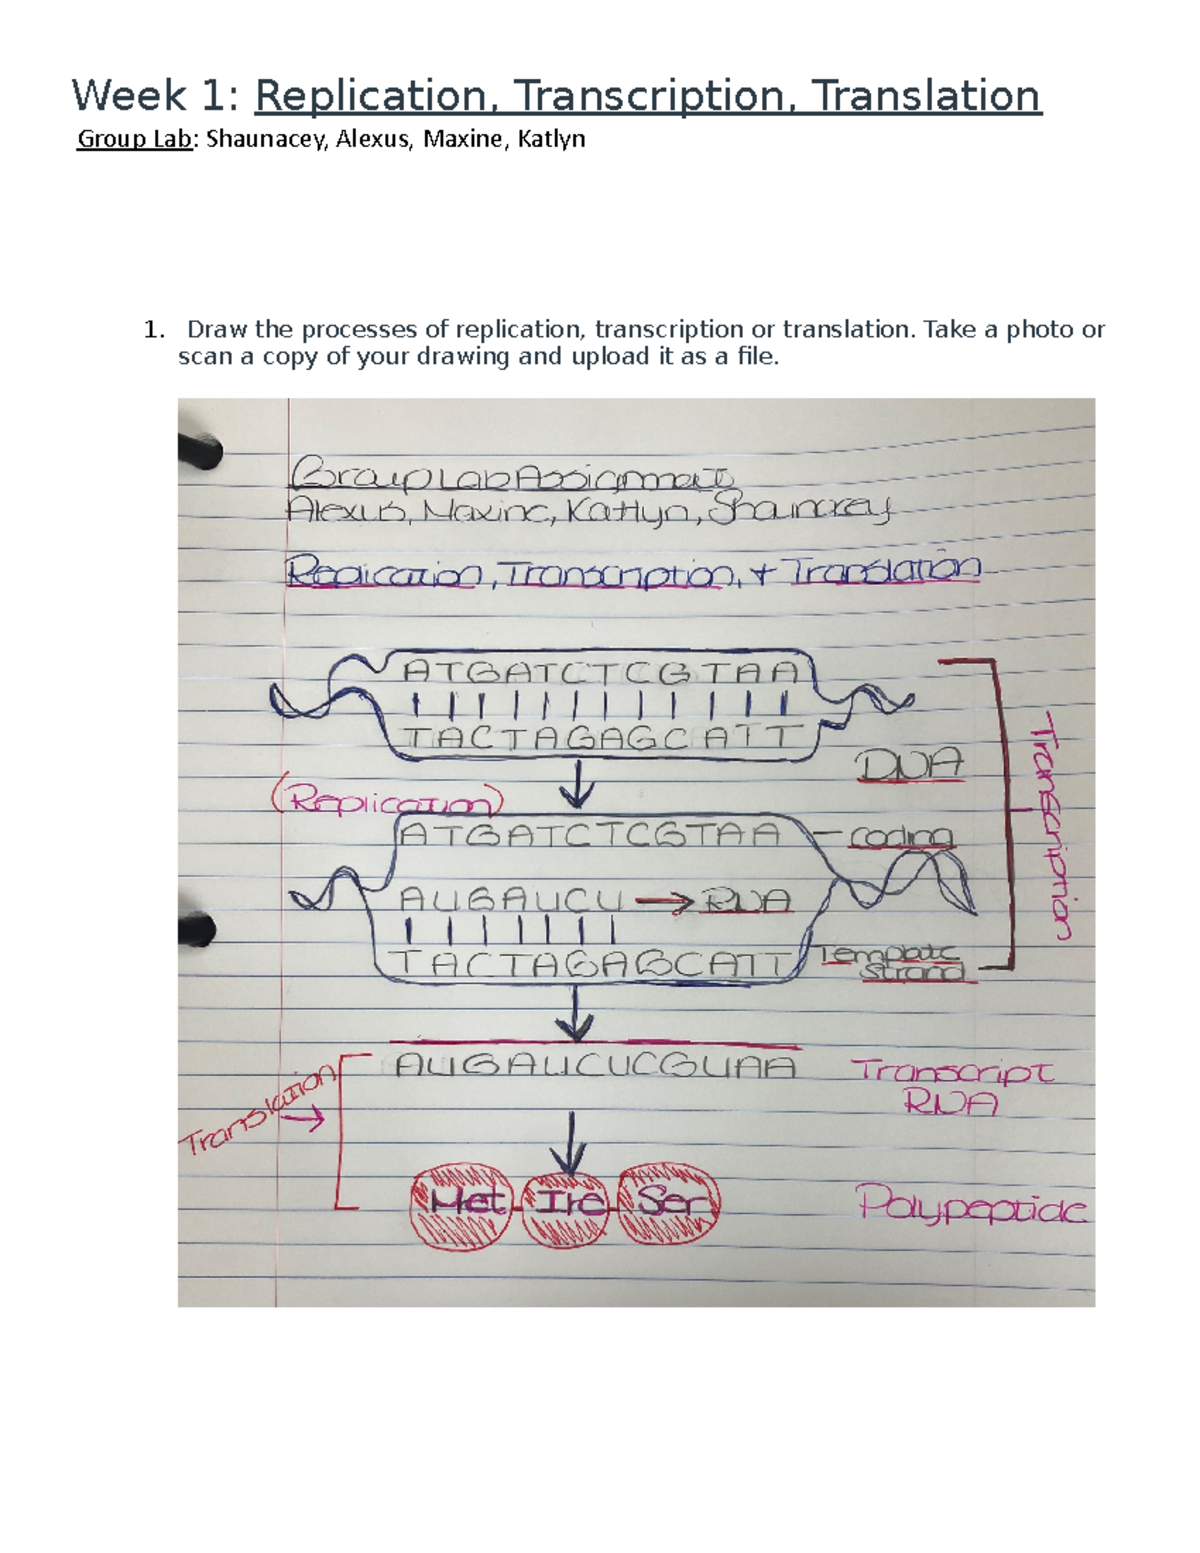 Week 1: Replication, Transcription, Translation
Group Lab: Shaunacey, Alexus, Maxine, Katlyn
1. Draw the processes of replication, transcription or translation. Take a photo or
scan a copy of your drawing and upload it as a file.
Group Lab Assignment
Alexus, Maxine, Katlyn, Shauncrey
Replication, Transcription, + Translation
ATGATCTCGTAA
TACTAGAGCATT
DNA
Transcription
(Replication)
ATGATCTCGTAA – coding
AUGAUCU → RNA
TACTAGAGCATT
Template
Strand
AUGAUCUCGUAA
Transcript
RNA
Translation
Met Ire Ser
Polypeptide